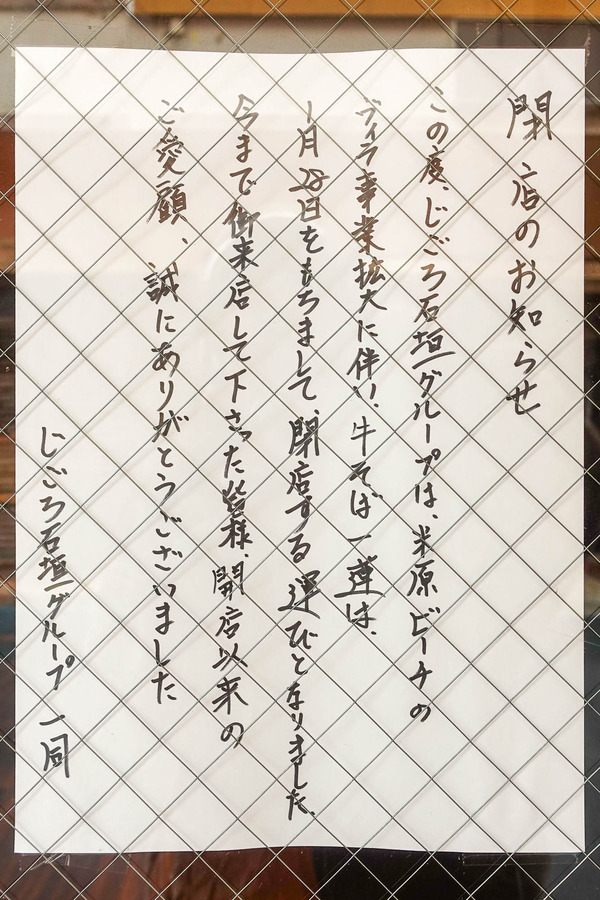 閉店のお知らせ
この度、じごろ石垣グループは、米原ビーチの
ヴィラ事業拡大に伴い、牛そば一蓮は、
1月28日をもちまして、閉店する運びとなりました。
今まで御来店して下さった皆様、開店以来の
ご愛顧、誠にありがとうございました
じごろ石垣グループ一同